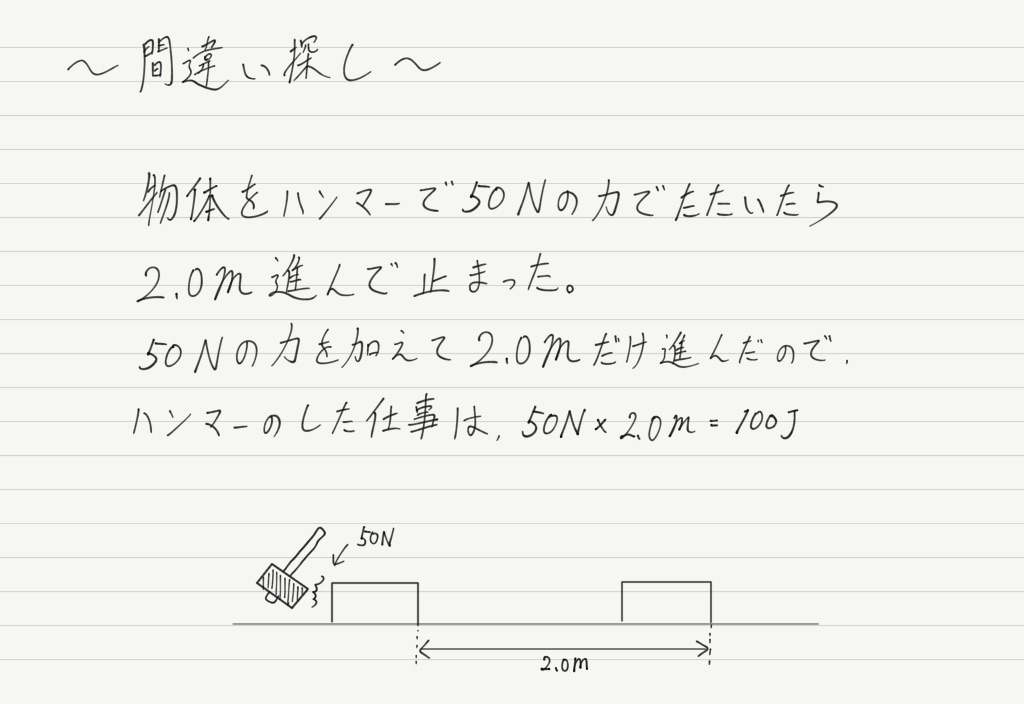 ～間違い探し～
物体をハンマーで50Nの力でたたいたら
2.0m進んで止まった。
50Nの力を加えて2.0mだけ進んだので,
ハンマーのした仕事は, 50N×2.0m=100J
50N
2.0m